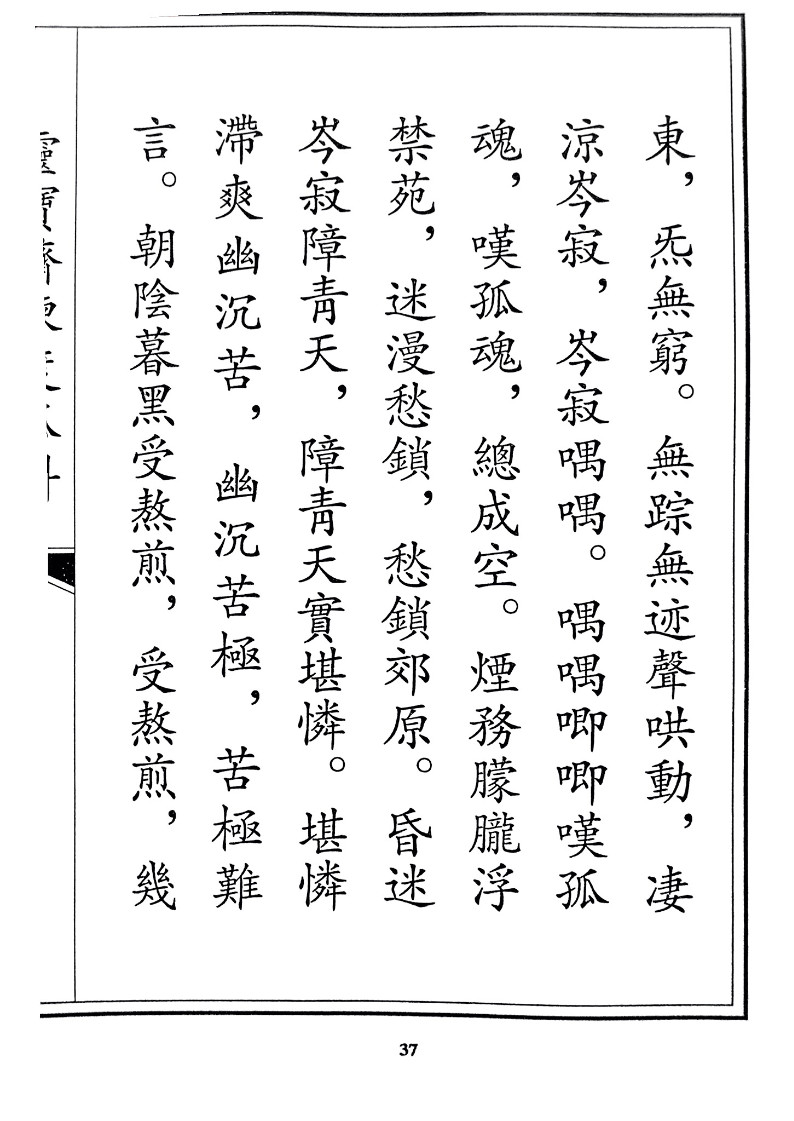 東，炁無窮。無踪無迹聲哄動，凄
涼岑寂，岑寂喁喁。喁喁唧唧嘆孤
魂，嘆孤魂，總成空。煙務朦朧浮
禁苑，迷漫愁鎖，愁鎖郊原。昏迷
岑寂障青天，障青天實堪憐。堪憐
滯爽幽沉苦，幽沉苦極，苦極難
言。朝陰暮黑受熬煎，受熬煎，幾
37